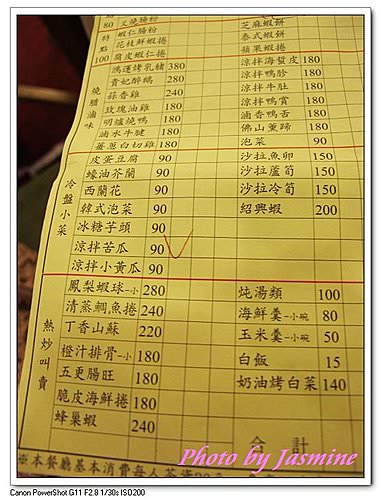 80 叉燒腸粉 芝麻蝦餅
點 蝦仁腸粉 泰式蝦餅
特 花枝蝦捲 蘋果蝦捲
100 腐皮蝦仁捲
燒腊滷味
鴻運烤乳豬 380 涼拌海蜇皮 180
貴妃醉鷄 280 涼拌鴨胗 180
蒜香雞 240 涼拌牛肚 180
玫瑰油雞 180 涼拌鴨賞 180
明爐燒鴨 180 滷香鴨舌 180
滷水牛腱 180 佛山熏蹄 180
薑蔥白切雞 180 泡菜 90
冷盤小菜
皮蛋豆腐 90 沙拉魚卵 150
蠔油芥蘭 90 沙拉蘆筍 150
西蘭花 90 沙拉冷筍 150
韓式泡菜 90 紹興蝦 200
冰糖芋頭 90
涼拌苦瓜 90
涼拌小黃瓜 90
熱炒叫賣
鳳梨蝦球-小 280 炖湯類 100
清蒸鯛魚捲 240 海鮮羹-小碗 80
丁香山蘇 220 玉米羹-小碗 50
橙汁排骨-小 180 白飯 15
五更腸旺 180 奶油烤白菜 140
脆皮海鮮捲 180
蜂巢蝦 240
合計
※本餐廳基本消費每人茶資20元
Photo by Jasmine
Canon PowerShot G11 F2.8 1/30s ISO200